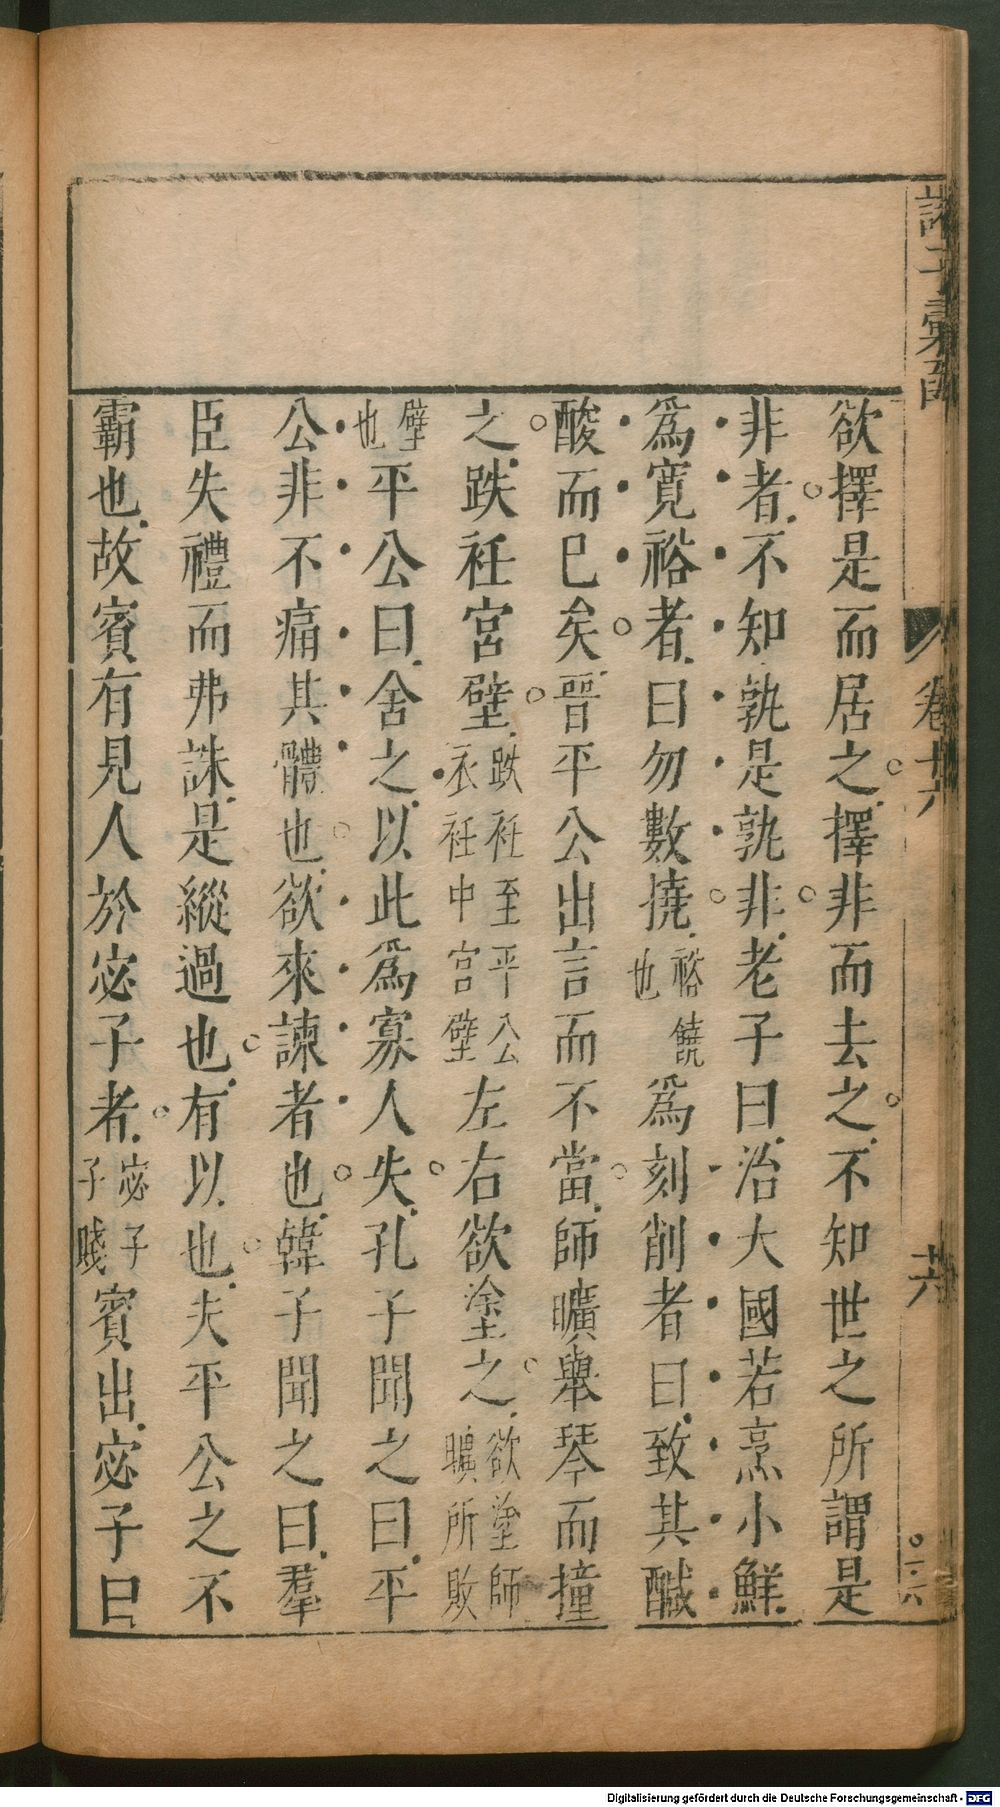 諸子彙函
卷十六
共
欲擇是而居之擇非而去之不知世之所謂是
非者不知孰是孰非老子曰治大國若烹小鮮
爲寬裕者曰勿數撓裕饒也爲刻削者曰致其醎
酸而巳矣晉平公出言而不當師曠舉琴而撞
之跌衽宮壁跌衽至平公衣衽中宮壁左右欲塗之欲塗師曠所敗
壁也平公曰舍之以此爲寡人失孔子聞之曰平
公非不痛其體也欲來諫者也韓子聞之曰羣
臣失禮而弗誅是縱過也有以也夫平公之不
霸也故賓有見人於宓子者宓子子賤賓出宓子曰
Digitalisierung gefördert durch die Deutsche Forschungsgemeinschaft - DFG